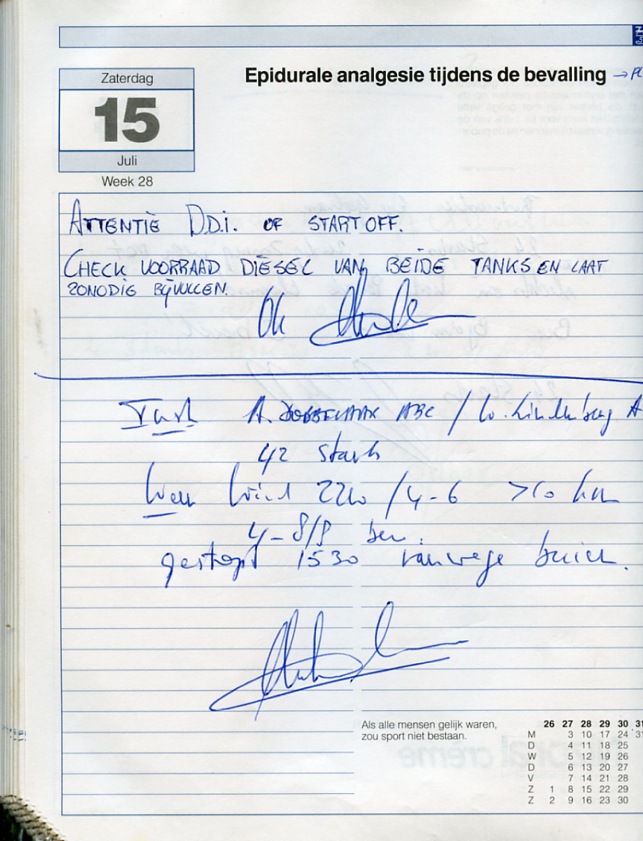 Epidurale analgesie tijdens de bevalling →
Zaterdag
15
Juli
Week 28
ATTENTIE D.D.I. OF START OFF.
CHECK VOORRAAD DIESEL VAN BEIDE TANKS EN LAAT
ZONODIG BIJVULLEN.
Ok
A. ABC /
42 starts
Wind 220 / 4-6 >10 km
4-8/8
gestopt 1530 vanwege buien.
Als alle mensen gelijk waren,
zou sport niet bestaan.
26 27 28 29 30 31
M 3 10 17 24 31
D 4 11 18 25
W 5 12 19 26
D 6 13 20 27
V 7 14 21 28
Z 1 8 15 22 29
Z 2 9 16 23 30